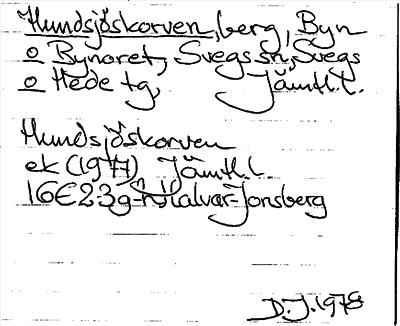 Hundsjöskorven, berg, Byn
o Bynoret, Svegs sn, Svegs
o Hede tg, Jämtl.l.
Hundsjöskorven
ek (1977) Jämtl.l.
16E2-3g-h Halvar=Jonsberg
D.J. 1978